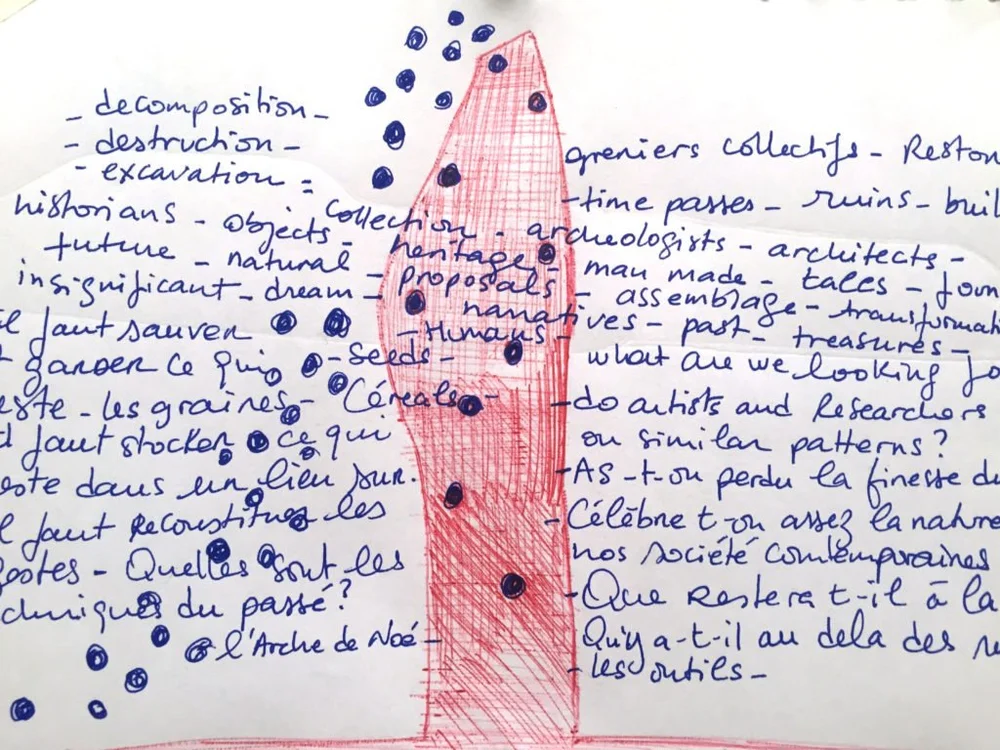 - decomposition -
- destruction -
- excavation =
historians - objects - collection - archeologists - architects -
future - natural - heritage - man made - tales -
insignificant - dream - proposals - assemblage - transformati
narratives - past - treasures -
- Humans -
- Seeds -
Céréales -
il faut sauver
garder ce qui
este - les graines -
faut stocker ce qui
este dans un lieu sur.
l faut reconstituer les
gestes - Quelles sont les
chniques du passé?
l'Arche de Noé -
greniers collectifs - Reston
- time passes - ruins - buil
what are we looking fo
- do artists and Researchers
on similar patterns?
- As-t-on perdu la finesse du
- Célèbre t-on assez la nature
nos société contemporaines
- Que restera t-il à la
Qu'y a-t-il au dela des
- les outils -